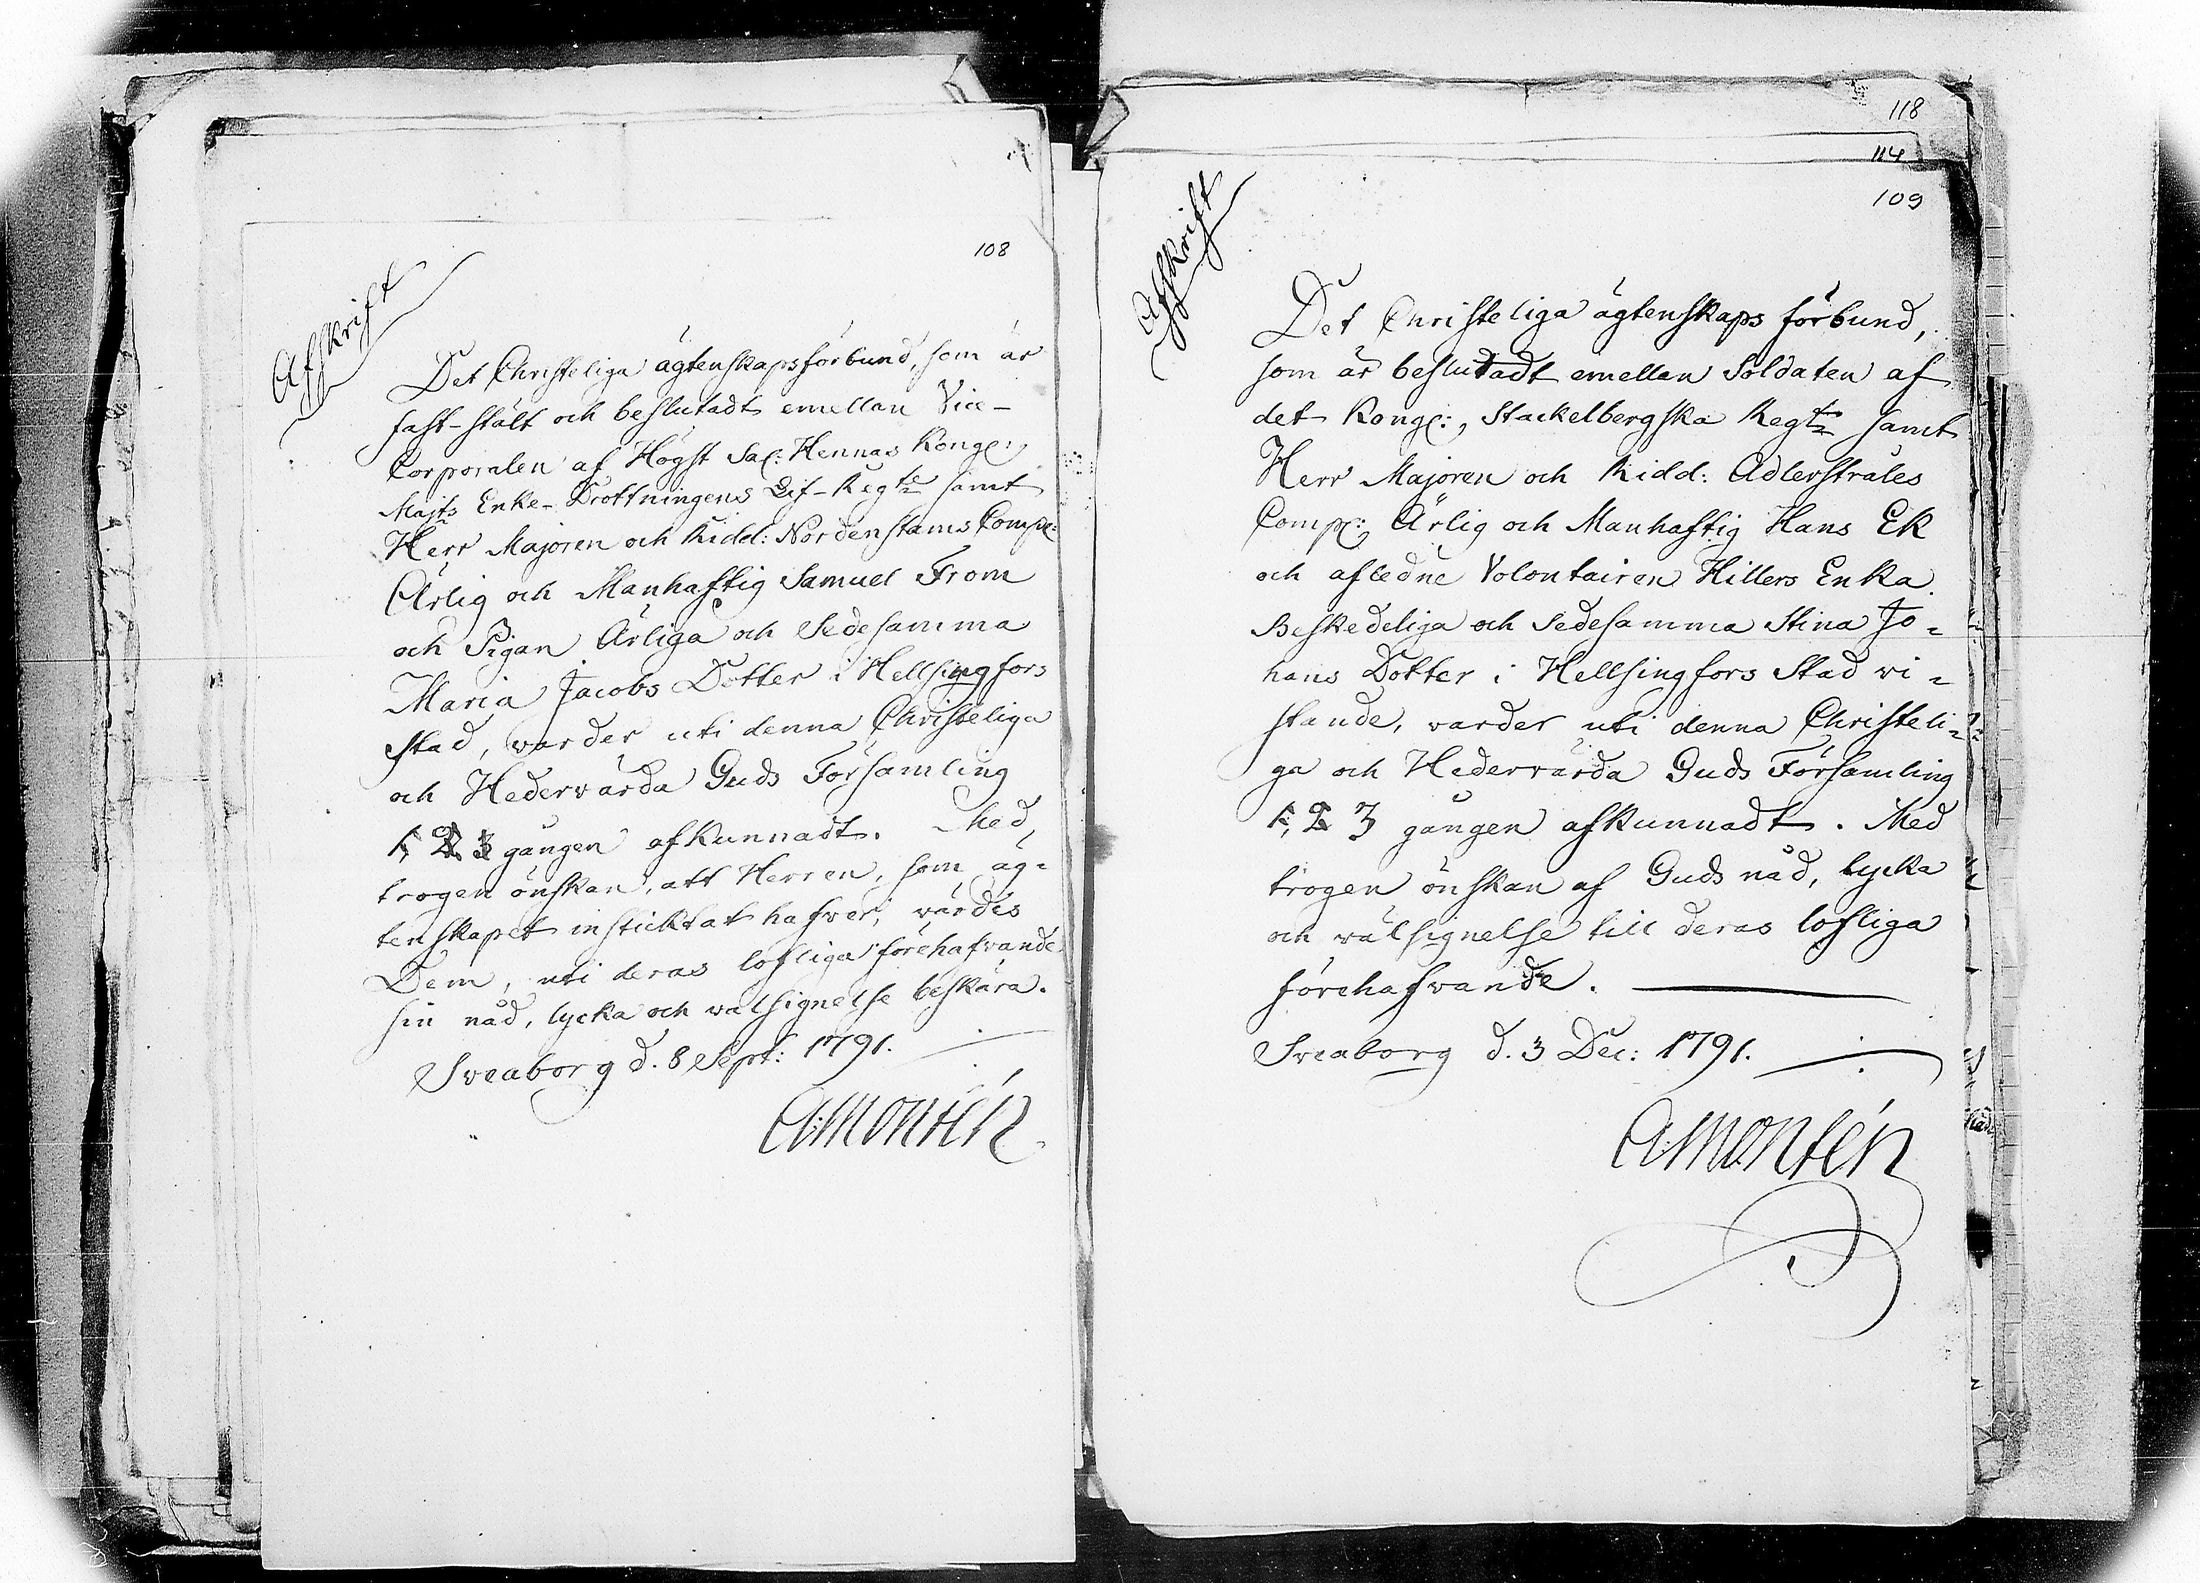 108
Afskrift
Det Christeliga ägtenskapsförbund, som är
fast-stält och beslutadt emellan Vice-
Corporalen af Högst Sal: Hennes Kongl:
Majts Enke-Drottningens Lif-Regte samt
Herr Majoren och Ridd: Nordenstams Comp:
Ärlig och Manhaftig Samuel From
och Pigan Ärliga och Sedesamma
Maria Jacobs Dotter i Hellsingfors
stad, varder uti denna Christeliga
och Hedervärda Guds Församling
1, 2. 3 gången afkunnadt. Med
trogen önskan, att Herren, som äg-
tenskapet insticktat hafver, värdes
Dem, uti deras lofliga förehafvande
sin nåd, lycka och välsignelse beskära.
Sveaborg d. 8 Sept: 1791.
A:Montén
118
114
109
Afskrift
Det Christeliga ägtenskaps förbund,
som är beslutadt emellan Soldaten af
det Kongl:, Stackelbergska Regte samt
Herr Majoren och Ridd: Adlerstråles
Comp:, Ärlig och Manhaftig Hans Ek
och afledne Volontairen Hillers Enka
Beskedeliga och Sedesamma Stina Jo=
hans Dotter i Hellsingfors Stad vi=
stande, varder uti denna Christeli=
ga och Hedervärda Guds Församling
1, 2 3 gången afkunnadt. Med
trogen önskan af Guds nåd, lycka
och välsignelse till deras lofliga
förehafvande.
Sveaborg d. 3 Dec: 1791.
A:Montén